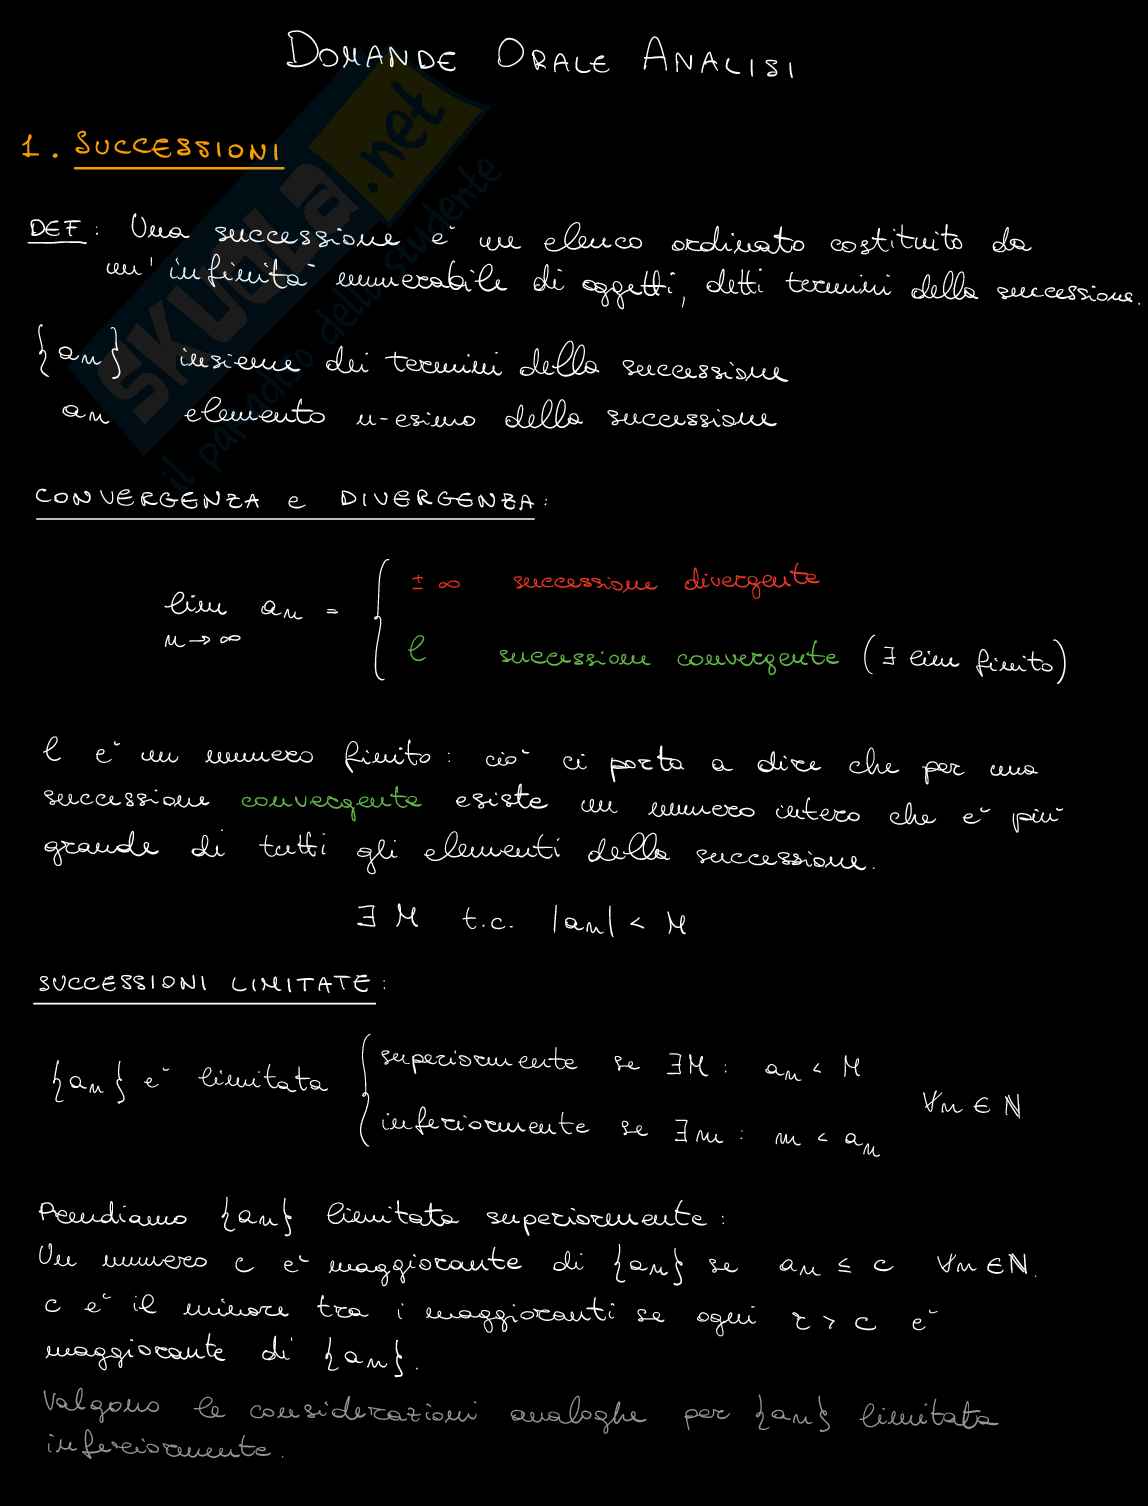 DOMANDE ORALE ANALISI
1. SUCCESSIONI
DEF: Una successione è un elenco ordinato costituito da
un'infinità numerabile di oggetti, detti termini della successione.
{aₙ} insieme dei termini della successione
aₙ elemento n-esimo della successione
CONVERGENZA e DIVERGENZA:
lim aₙ = { ± ∞ successione divergente
n→∞ l successione convergente (∃ lim finito)
l è un numero finito: ciò ci porta a dire che per una
successione convergente esiste un numero intero che è più
grande di tutti gli elementi della successione.
∃ M t.c. |aₙ| < M
SUCCESSIONI LIMITATE:
{aₙ} è limitata { superiormente se ∃M: aₙ < M
inferiormente se ∃m: m < aₙ ∀n ∈ ℕ
Prendiamo {aₙ} limitata superiormente:
Un numero c è maggiorante di {aₙ} se aₙ ≤ c ∀n ∈ ℕ.
c è il minore tra i maggioranti se ogni r > c è
maggiorante di {aₙ}.
Valgono le considerazioni analoghe per {aₙ} limitata
inferiormente.
SKUOLA.net
il paradiso dello studente